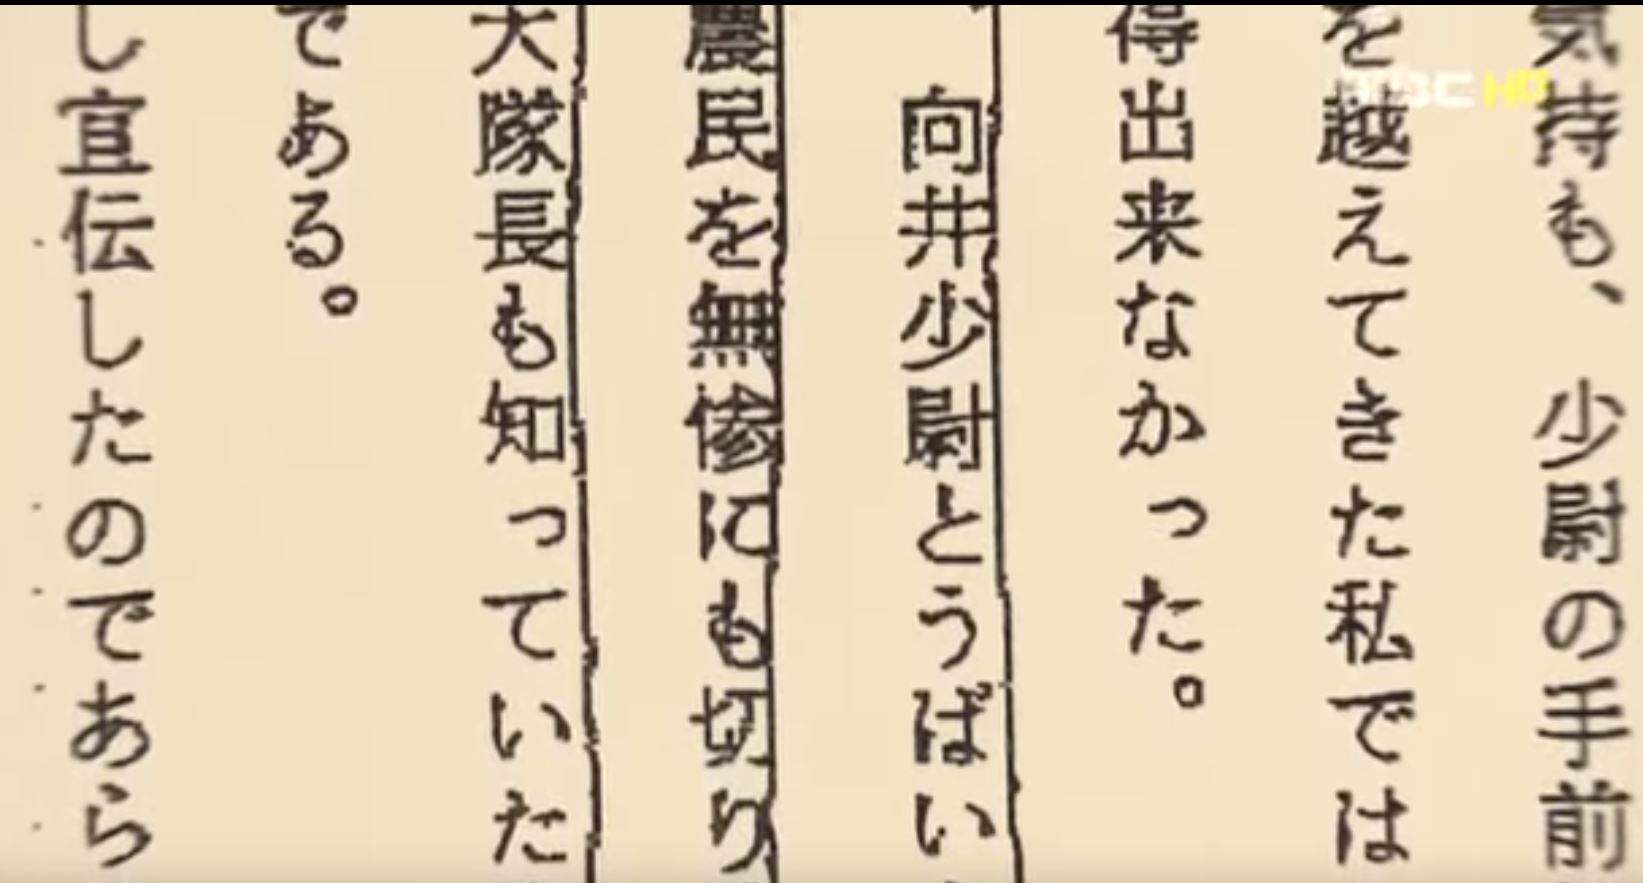 気持も、少尉の手前
を越えてきた私では
得出来なかった。
、向井少尉とうばい
農民を無惨にも切り
大隊長も知っていた
である。
し宣伝したのであら
MBC HD